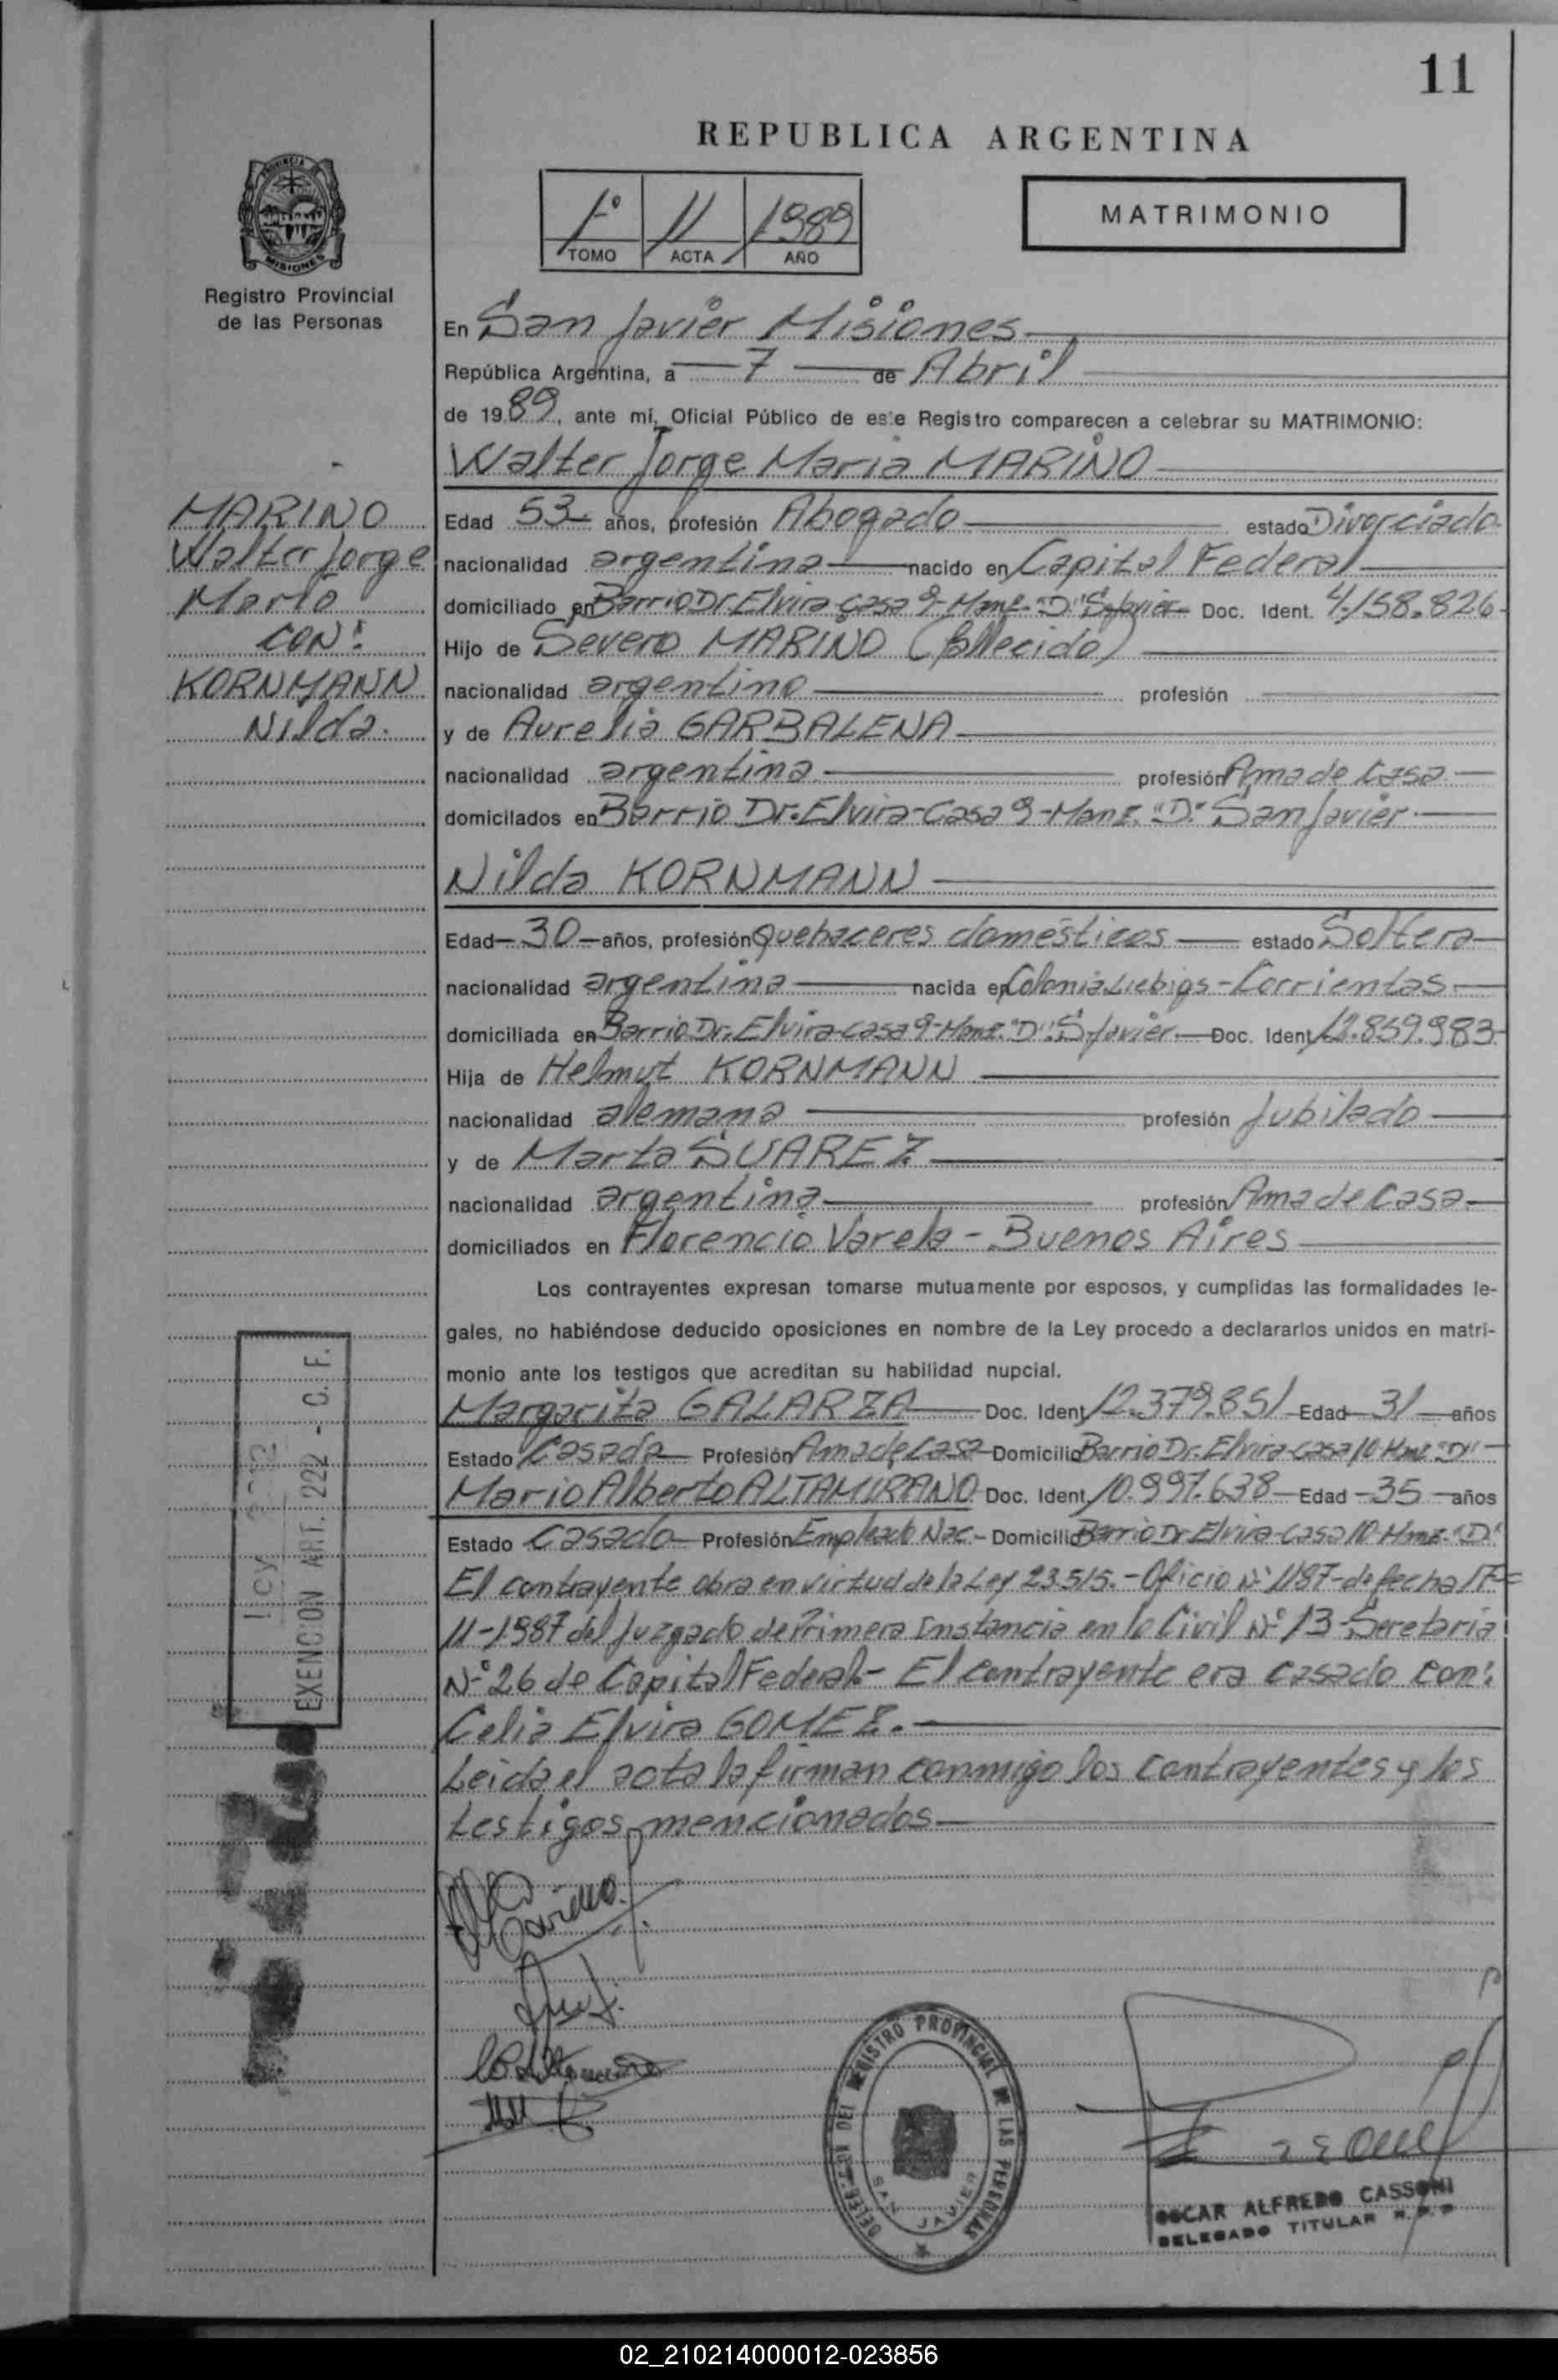 11
REPUBLICA ARGENTINA
1º 11 1989
TOMO ACTA AÑO
MATRIMONIO
PROVINCIA
MISIONES
Registro Provincial
de las Personas
En San Javier Misiones
República Argentina, a 7 de Abril
de 1989, ante mí, Oficial Público de este Registro comparecen a celebrar su MATRIMONIO:
Walter Jorge Maria MARINO
MARINO
Walter Jorge
Maria
CON:
KORNMANN
Nilda.
Edad 53 años, profesión Abogado estado Divorciado
nacionalidad argentina nacido en Capital Federal
domiciliado en Barrio Dr. Elvira casa 9-Manz. "D" S. Javier Doc. Ident. 4.158.826
Hijo de Severo MARINO (fallecido)
nacionalidad argentino profesión
y de Aurelia GARBALENA
nacionalidad argentina profesión Ama de Casa
domicilados en Barrio Dr. Elvira-Casa 9-Manz. "D" San Javier
Nilda KORNMANN
Edad 30 años, profesión Quehaceres domésticos estado Soltera
nacionalidad argentina nacida en Colonia Liebigs-Corrientes
domiciliada en Barrio Dr. Elvira-casa 9-Manz. "D" S. Javier. Doc. Ident 12.859.983
Hija de Helmut KORNMANN
nacionalidad alemana profesión Jubilado
y de Marta SUAREZ
nacionalidad argentina profesión Ama de Casa
domiciliados en Florencio Varela - Buenos Aires
Los contrayentes expresan tomarse mutuamente por esposos, y cumplidas las formalidades le-
gales, no habiéndose deducido oposiciones en nombre de la Ley procedo a declararlos unidos en matri-
monio ante los testigos que acreditan su habilidad nupcial.
Margarita GALARZA Doc. Ident 12.379.851 Edad 31 años
Estado Casada Profesión Ama de Casa Domicilio Barrio Dr. Elvira-casa 10 Mnz "D"
Mario Alberto ALTAMIRANO Doc. Ident 10.997.638 Edad 35 años
Estado Casado Profesión Empleado Nac. Domicilio Barrio Dr Elvira-Casa 10 Mnz. "D"
El contrayente obra en virtud de la Ley 23.515.- Oficio Nº 1187-de fecha 17-
11-1987 del Juzgado de Primera Instancia en lo Civil Nº 13 Secretaria
Nº 26 de Capital Federal.- El contrayente era casado con:
Celia Elvira GOMEZ.
Leida el acta la firman conmigo los contrayentes y los
testigos mencionados
EXENCION ART. 222 - C. F.
DELEGACION DEL REGISTRO PROVINCIAL DE LAS PERSONAS
SAN JAVIER
OSCAR ALFREDO CASSONI
DELEGADO TITULAR R.P.P
02_210214000012-023856